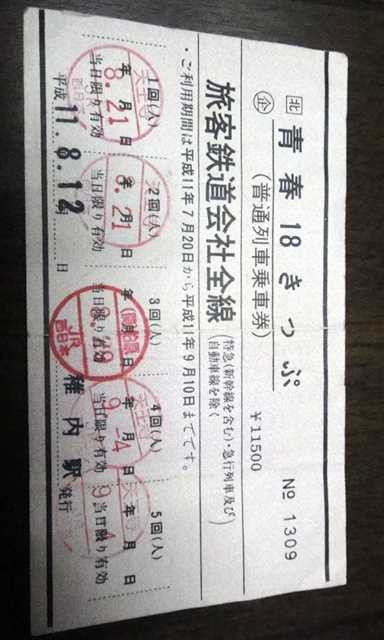 ㊗ 青春18きっぷ
企 (普通列車乗車券)
¥11500
№ 1309
旅客鉄道会社全線
(特急(新幹線を含む)・急行列車及び
自動車線を除く)
・ご利用期間は平成11年7月20日から平成11年9月10日までです。
1回(人) 2回(人) 3回(人) 4回(人) 5回(人)
年 月 日 年 月 日 年 月 日 年 月 日 年 月 日
8.21 8.21 9.-4 9.-4
当日限り有効 当日限り有効 当日限り有効 当日限り有効 当日限り有効
JR西日本
平成 11.8.12 日 稚内駅 発行